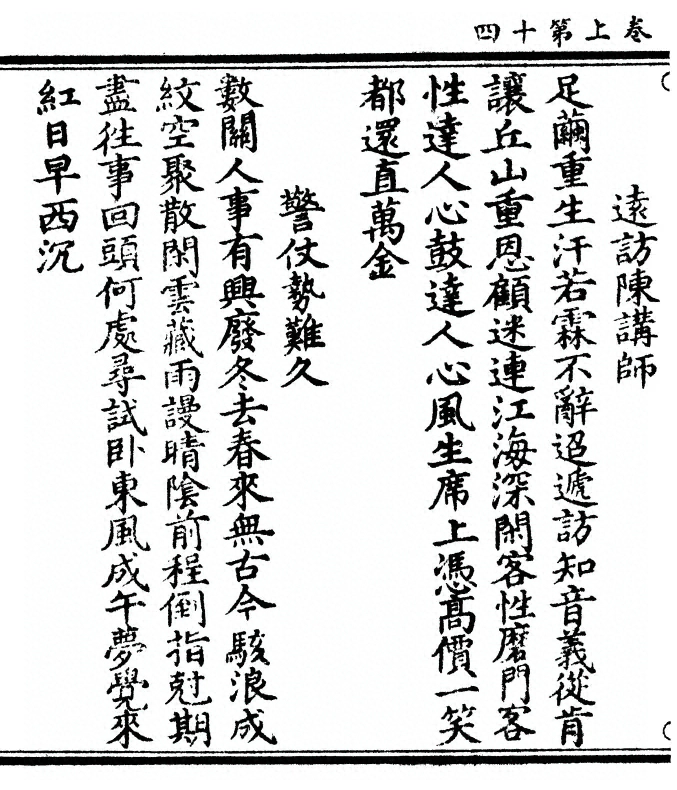 卷上第十四
遠訪陳講師
足繭重生汗若霖不辭迢遞訪知音義從肯
讓丘山重恩顧迷連江海深閑客性磨門客
性達人心鼓達人心風生席上馮高價一笑
都還直萬金
警仗勢難久
數關人事有興廢冬去春來無古今駭浪成
紋空聚散閑雲藏雨謾晴陰前程倒指尅期
盡往事回頭何處尋試卧東風成午夢覺來
紅日早西沉